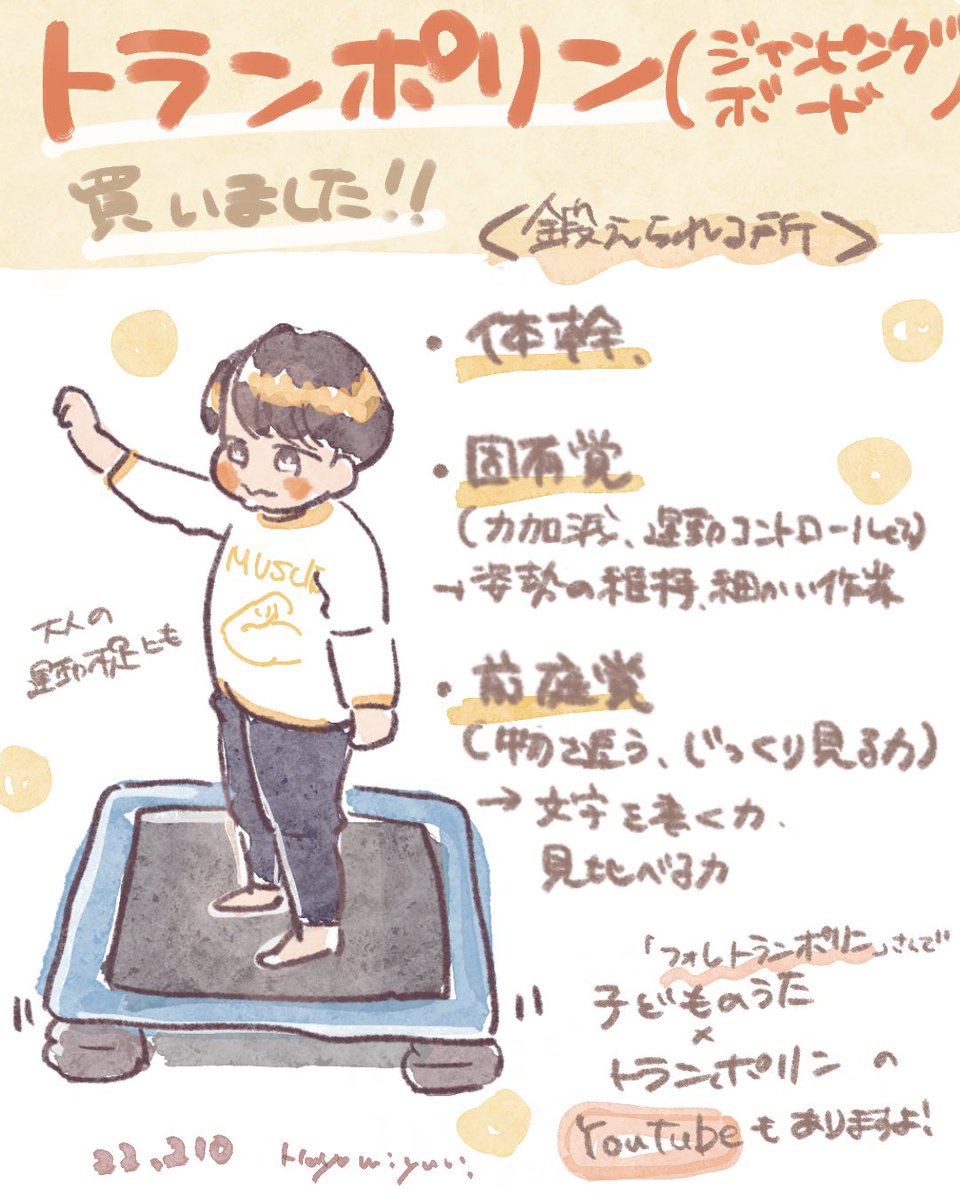 トランポリン(ジャンピングボード)
買いました!!
<鍛えられる所>
・体幹、
・固有覚
(力加減、運動コントロールする)
→姿勢の維持、細かい作業
・前庭覚
(物を追う、じっくり見る力)
→文字を書く力、
見比べる力
MUSCLE
大人の
運動不足にも
「フォレトランポリン」さんで
子どものうた
×
トランポリンの
YouTubeもありますよ!
22.210